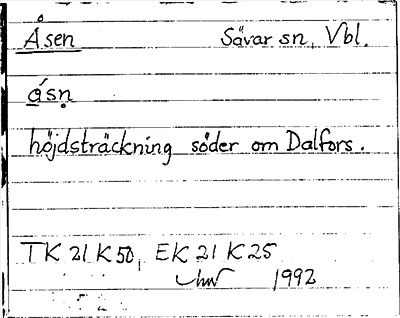 Åsen Sävar sn, Vbl.
ásṇ
höjdsträckning söder om Dalfors.
TK 21 K 50, EK 21 K 25
1992